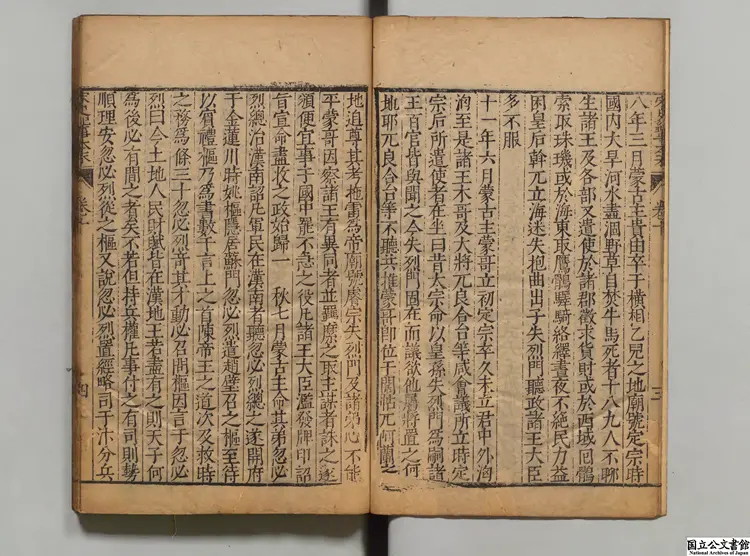 八年三月蒙古主貴由卒于橫相乙兒之地廟號定宗時
國內大旱河水盡涸野草自焚牛馬死者十八九人不聊
生諸王及各部又遣使於諸郡徵求貨財或於西域回鶻
索取珠璣或於海東取鷹鶻驛騎絡繹晝夜不絕民力益
困皇后幹兀立海迷失抱曲出子失烈門聽政諸王大臣
多不服
十一年六月蒙古主蒙哥立初定宗卒久未立君中外洶
洶至是諸王木哥及大將兀良合台等咸會議所立時定
宗后所遣使者在坐曰昔太宗命以皇孫失烈門為嗣諸
王百官皆與聞之今失烈門固在而議欲他屬將置之何
地耶兀良合台等不聽共推蒙哥即位于闊帖兀阿蘭之
地追尊其考拖雷為帝廟號睿宗失烈門及諸弟心不能
平蒙哥因察諸王有異同者並羈縻之取主謀者誅之遂
頒便宜事于國中罷不急之役凡諸王大臣濫發牌印詔
旨宣命盡收之政始歸一　秋七月蒙古主命其弟忽必
烈總治漠南詔凡軍民在漠南者聽忽必烈總之遂開府
于金蓮川時姚樞隱居蘇門忽必烈遣趙璧召之樞至待
以賓禮樞乃為書數千言上之首陳帝王之道次及救時
之務為條三十忽必烈奇其才動必召問樞因言于忽必
烈曰今土地人民財賦皆在漢地王若盡有之則天子何
為後必有間之者矣不若但持兵權凡事付之有司則勢
順理安忽必烈從之樞又說忽必烈置經略司于汴分兵
国立公文書館
National Archives of Japan